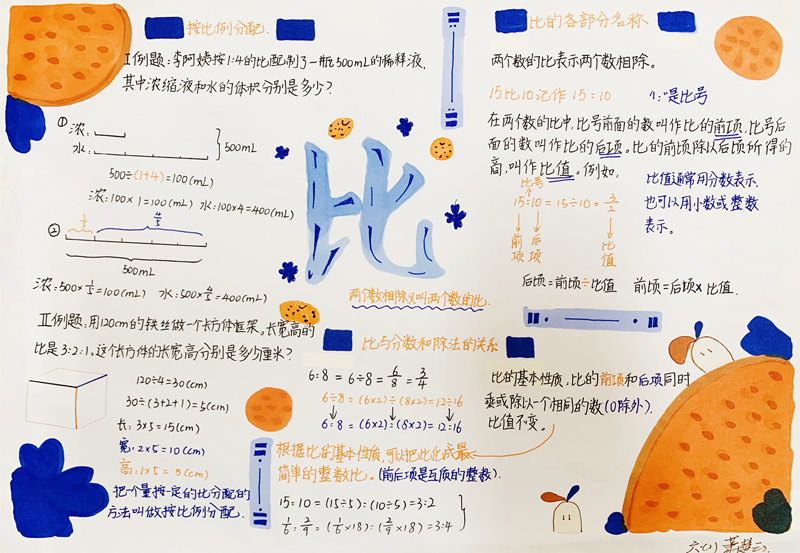 按比例分配.
Ⅰ例题:李阿姨按1:4的比配制了一瓶500mL的稀释液,
其中浓缩液和水的体积分别是多少?
①
浓:
水:
500mL
500÷(1+4)=100(mL)
浓:100×1=100(mL) 水:100×4=400(mL)
②
1/5
4/5
500mL
浓:500×1/5=100(mL) 水:500×4/5=400(mL)
Ⅱ例题:用120cm的铁丝做一个长方体框架。长宽高的
比是3:2:1。这个长方体的长宽高分别是多少厘米?
120÷4=30(cm)
30÷(3+2+1)=5(cm)
长:3×5=15(cm)
宽:2×5=10(cm)
高:1×5=5(cm)
把一个量按一定的比分配的
方法叫做按比例分配.
比
两个数相除又叫两个数的比.
比与分数和除法的关系
6:8=6÷8=6/8=3/4
6÷8=(6×2)÷(8×2)=12÷16
6:8=(6×2):(8×2)=12:16
根据比的基本性质,可以把比化成最
简单的整数比。(前后项是互质的整数).
15:10=(15÷5):(10÷5)=3:2
1/6:2/9=(1/6×18):(2/9×18)=3:4
比的各部分名称
两个数的比表示两个数相除。
15比10记作 15:10 ":"是比号
在两个数的比中,比号前面的数叫作比的前项,比号后
面的数叫作比的后项。比的前项除以后项所得的
商,叫作比值。例如,
比号
15:10=15÷10=3/2
前项 后项 比值
比值通常用分数表示,
也可以用小数或整数
表示。
后项=前项÷比值 前项=后项×比值.
比的基本性质,比的前项和后项同时
乘或除以一个相同的数(0除外).
比值不变。
六(1)